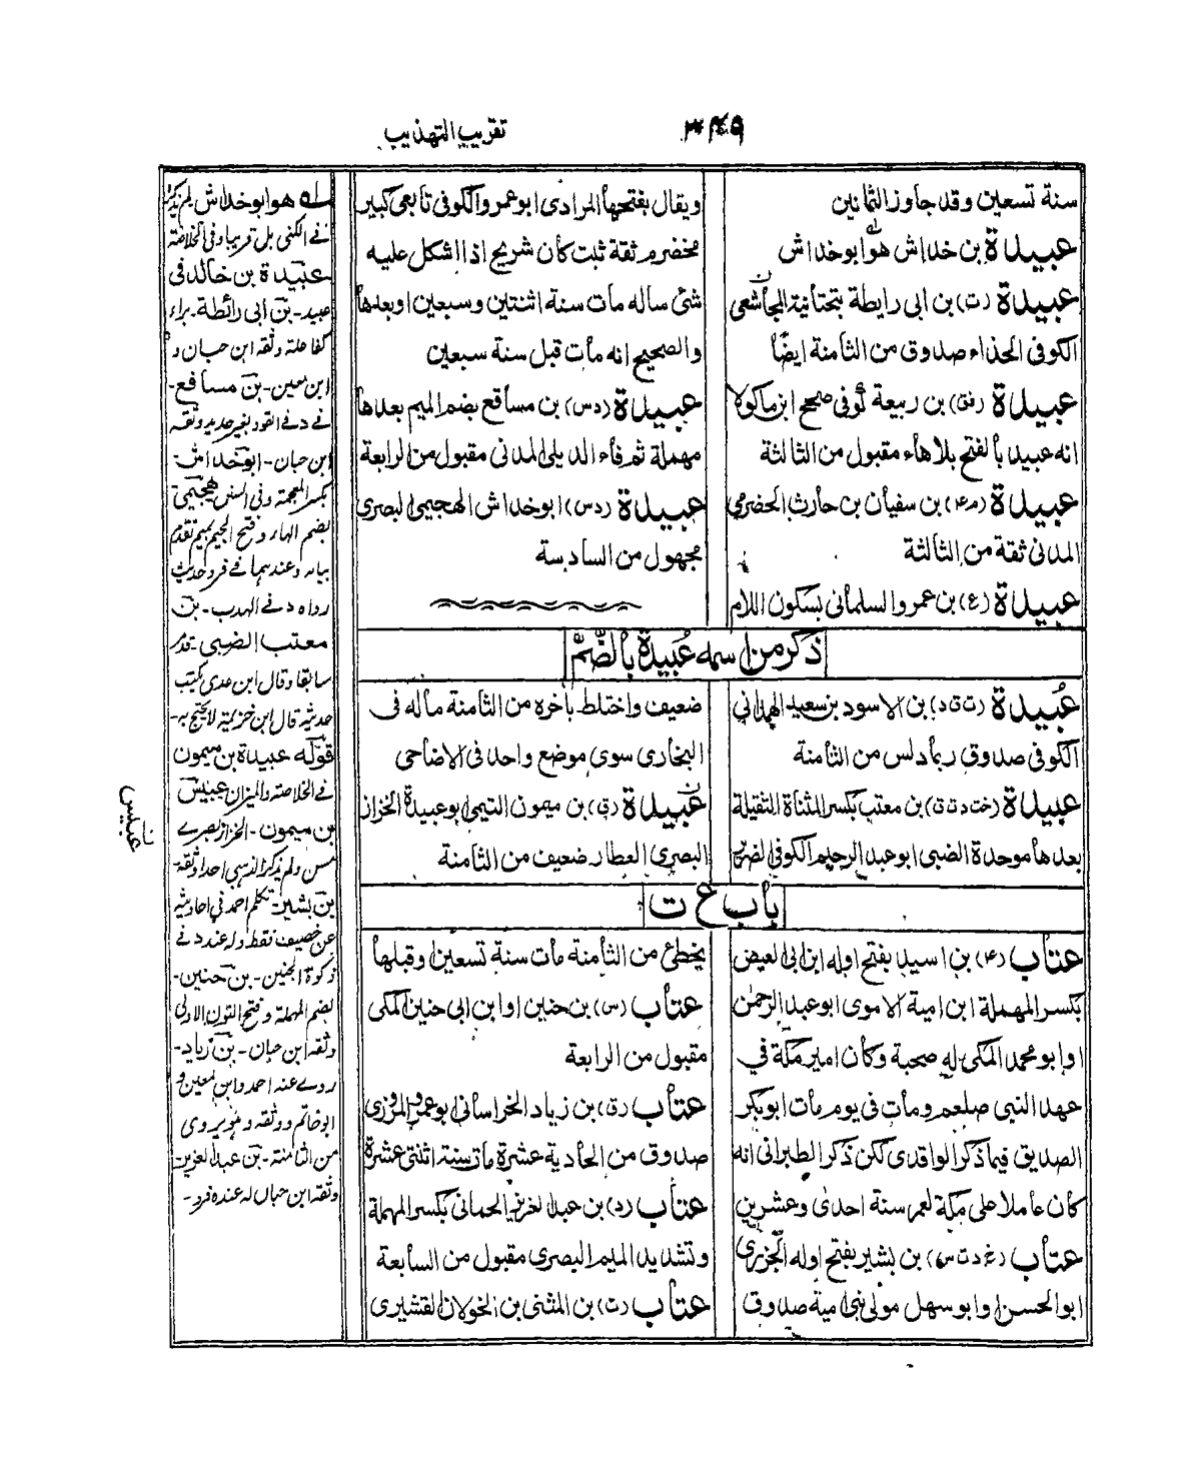 ٣٤٩
تقريب التهذيب
سنة تسعين وقد جاوز الثمانين
عبيدة بن خداش هو ابو خداش
عبيدة (ت) بن ابى رايطة بتحتانية المجاشعى
الكوفى الحذاء صدوق من الثامنة ايضًا
عبيدة (فق) بن ربيعة كوفى صحح ابن ماكولا
انه عبيد بالفتح بلا هاء مقبول من الثالثة
عبيدة (م٤) بن سفيان بن حارث الحضرمى
المدنى ثقة من الثالثة
عبيدة (ع) بن عمرو السلمانى بسكون اللام
ويقال بفتحها المرادى ابو عمرو الكوفى تابعى كبير
مخضرم ثقة ثبت كان شريح اذا اشكل عليه
شئ ساله مات سنة اثنتين وسبعين او بعدها
والصحيح انه مات قبل سنة سبعين
عبيدة (دس) بن مسافع بضم الميم بعدها
مهملة ثم فاء الديلى المدنى مقبول من الرابعة
عبيدة (دس) ابو خداش الهجيمى البصرى
مجهول من السادسة
ذكر من اسمه عُبيدة بالضَّمِّ
عُبيدة (ت ق د) بن الاسود بن سعيد الهمدانى
الكوفى صدوق ربما دلس من الثامنة
عبيدة (خت د ت ق) بن معتب بكسر المثناة الثقيلة
بعدها موحدة الضبى ابو عبد الرحيم الكوفى الضرير
ضعيف واختلط باخره من الثامنة ماله فى
البخارى سوى موضع واحد فى الاضاحى
عبيدة (ق) بن ميمون التيمى ابو عبيدة الخزاز
البصرى العطار ضعيف من الثامنة
باب ع ت
عتاب (٤) بن اسيد بفتح اوله ابن ابى العيص
بكسر المهملة ابن امية الاموى ابو عبد الرحمن
او ابو محمد المكى له صحبة وكان امير مكة في
عهد النبي صلعم ومات فى يوم مات ابو بكر
الصديق فيما ذكر الواقدى لكن ذكر الطبرانى انه
كان عاملا على مكة لعمر سنة احدى وعشرين
عتاب (خ د ت س) بن بشير بفتح اوله الجزرى
ابو الحسن او ابو سهل مولى بنى امية صدوق
يخطئ من الثامنة مات سنة تسعين او قبلها
عتاب (س) بن حنين او ابن ابى حنين المكى
مقبول من الرابعة
عتاب (ق) بن زياد الخراسانى ابو عمرو المروزى
صدوق من الحادية عشرة مات سنة اثنتى عشرة
عتاب (د) بن عبد العزيز الحمانى بكسر المهملة
وتشديد الميم البصرى مقبول من السابعة
عتاب (ت) بن المثنى بن الخولان القشيرى
له هو ابو خداش لم يذكره
فے الكنى بل قريبا وفى الخلاصة
عبيدة بن خالد فى
عبيد - بن ابى رائطة - براء
كفاعلة وثقه ابن حبان و
ابن معين - بن مسافع -
ابن حبان - ابو خداش
بكسر المعجمة وفى السنن هجيمى
بضم الهاء وفتح الجيم بميم تقدم
بيانه وعندهما فے فرد حديث
رواه د فے الهدب - بن
معتب الضبى - قدم
سابقا وقال ابن عدى يكتب
حديثه قال ابن خزيمة لا يحتج به -
قوله عبيدة بن ميمون
فے الخلاصة والميزان عبيس
بن ميمون - الخزاز بصرے
بن بشير - تكلم احمد فى احاديثه
عن خصيف فقط وله عند د فے
زكوة الجنين - بن حنين -
بضم المهملة وفتح النون الاولى
وثقه ابن حبان - بن زياد -
روے عنه احمد وابن معين و
ابو حاتم ووثقه
من الثامنة - بن عبد العزيز
وثقه ابن حبان له عنده فرد -
عبيس